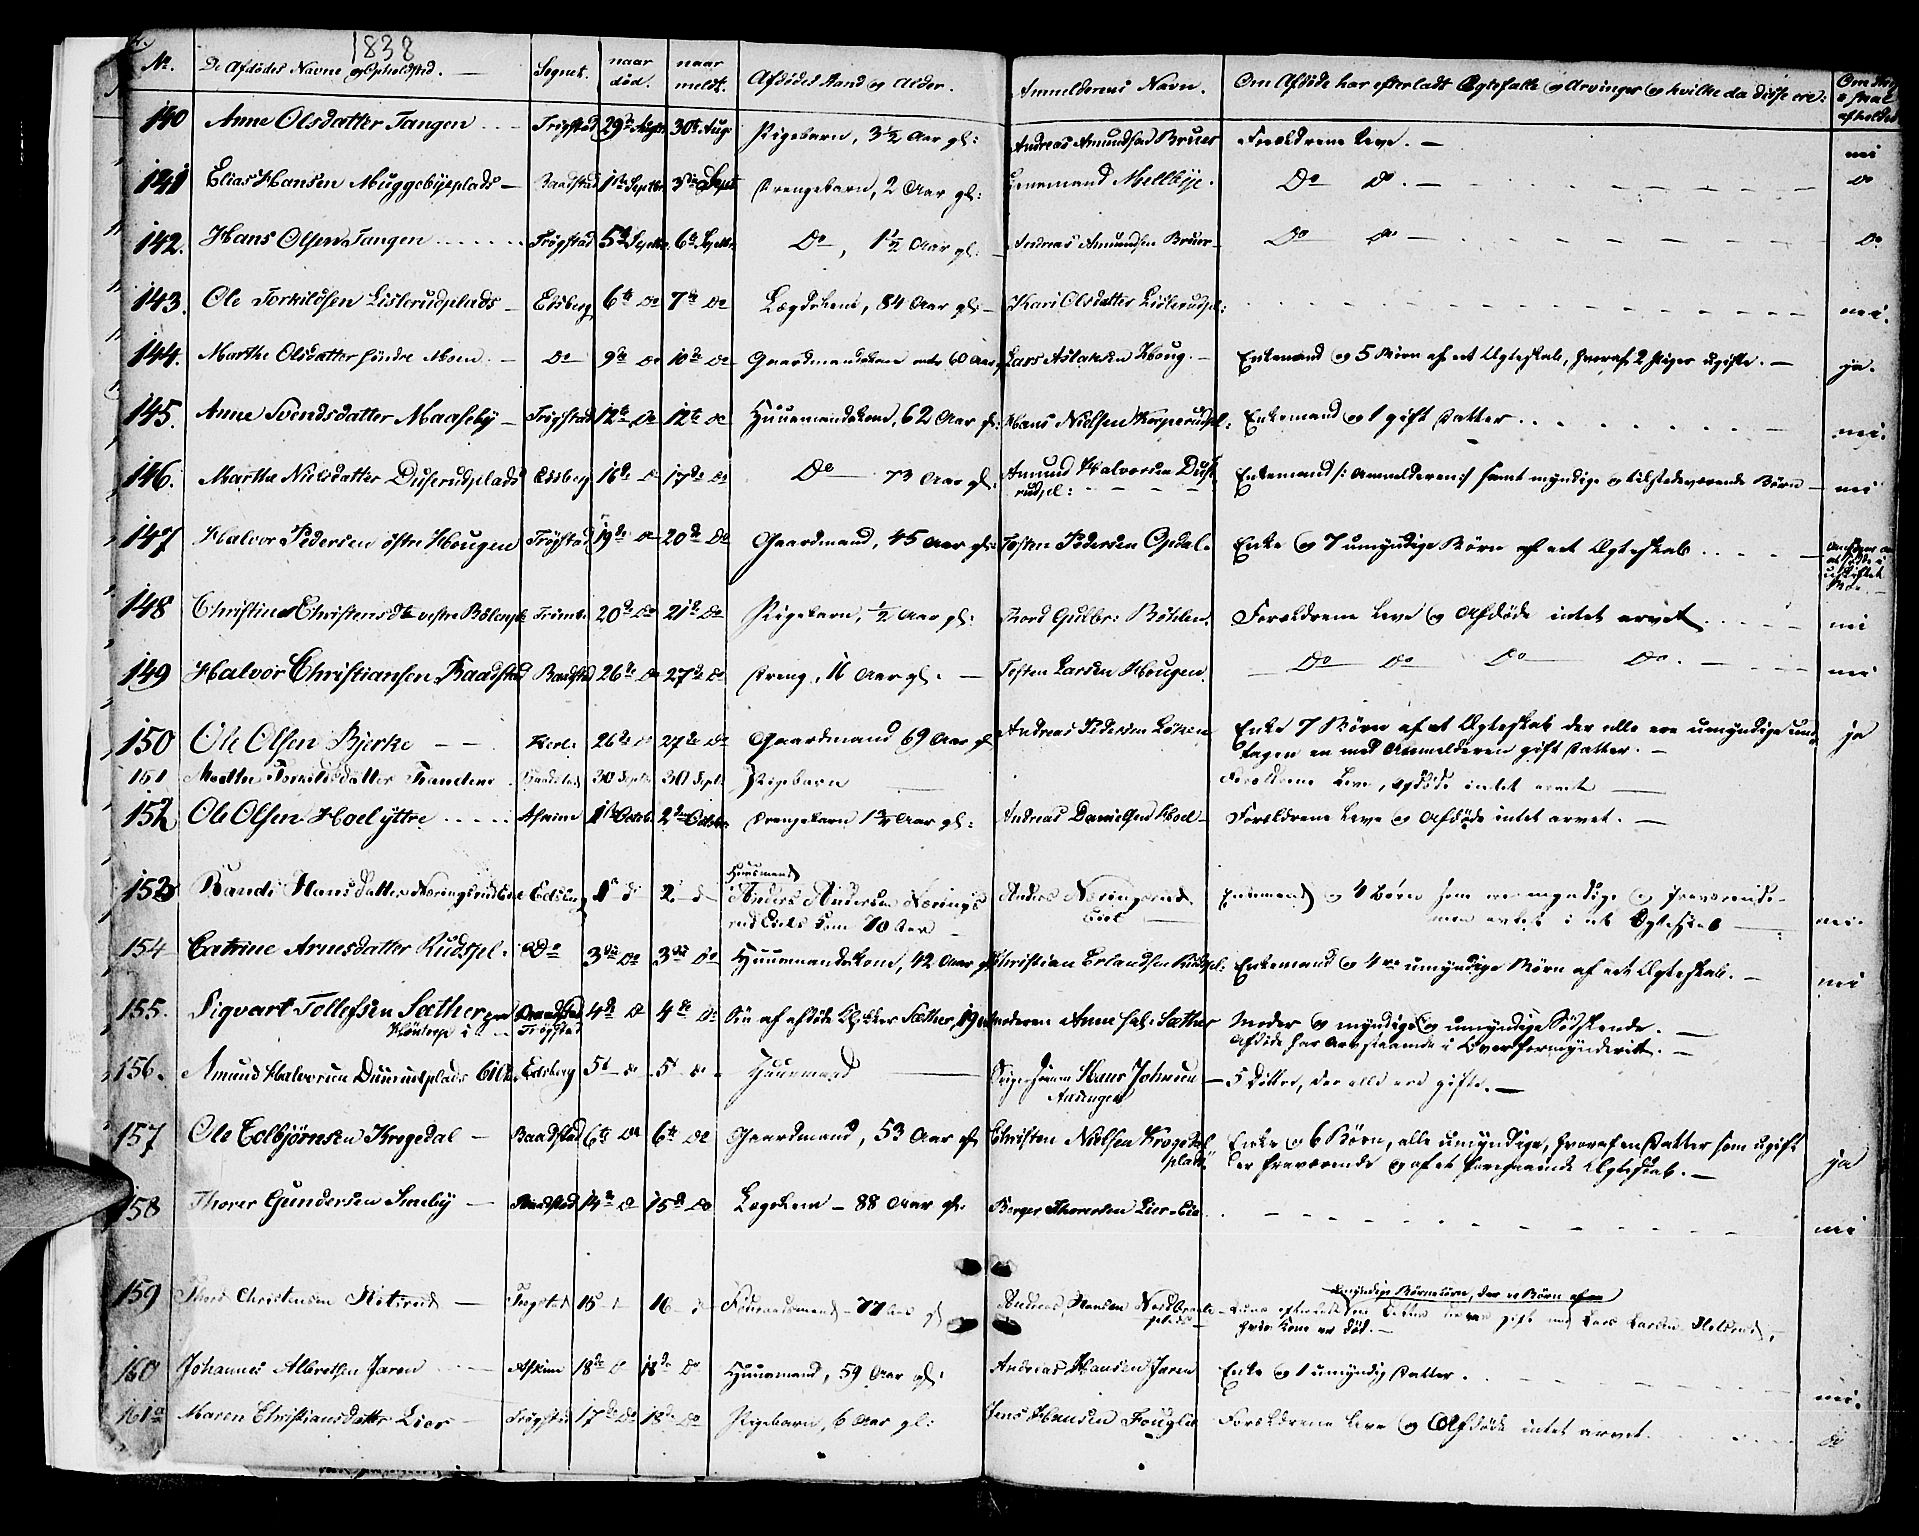 1838
No. De Afdødes Navne og Opholdsted. Sognet. naar død. naar meldt. Afdødes Stand og Alder. Anmelderens Navn. Om Afdøde har efterladt Ægtefælle og Arvinger og hvilke da disse ere:
140 Anne Olsdatter Tangen Trøgstad 29de Augst 30te Aug Pigebarn, 3 1/2 Aar gl: Andreas Amundsen Bruer Forældrene leve. nei
141 Elias Hansen Muggebyeplads Baadstad 1ste Septbr 3die Septb Drengebarn, 2 Aar gl: Mellbye. Do Do. Do
142. Hans Olsen Tangen Trøgstad 5te Septbr 6te Septbr Do, 1 1/2 Aar gl: Andreas Amundsen Bruer Do Do Do
143. Ole Torkildsen Lislerudplads Edsberg 6te Do 7de Do Lægdslem, 84 Aar gl: Kari Olsdatter Lislerudpl: nei.
144. Marthe Olsdatter søndre Moen Do 9de Do 10de Do Gaardmandskone 60 Aar Lars Aslaksen Houg. Enkemand og 5 Børn af eet Ægteskab, hvoraf 2 Piger ugifte. ja.
145. Anne Svendsdatter Maaseby Trøgstad 12te Do 12te Do Huusmandskone, 62 Aar gl: Hans Nielsen Enkemand og 1 gift Datter nei.
146. Marthe Nielsdatter Duserudplads Edsberg 16de Do 17de Do Do 73 Aar gl: Amund Halvorsen Duserudpl: Enkemand /: Anmelderen :/ samt myndige og tilstedeværende Børn nei
147 Halvor Pedersen østre Hougen Trøgstad 19de Do 20de Do Gaardmand, 45 Aar gl: Tosten Pedersen Opdal. Enke og 7 umyndige Børn af eet Ægteskab
148 Christine Christensdtr vestre Trømb. 20de Do 21de Do Pigebarn, 1/2 Aar gl: Tord Gulbr: Bøhlen. Forældrene leve og Afdøde intet arvet nei
149 Halvor Christiansen Baadstad Baadstad 26de Do 27de Do Dreng, 11 Aar gl. Tosten Larsen Hougen. Do Do Do Do. nei
150 Ole Olsen Bjerke 26de Do 27de Do Gaardmand 69 Aar gl Andreas Pedersen Løken Enke 7 Børn af et Ægteskab der alle ere umyndige und-
tagen en med Anmelderen gift Datter. ja
151 Baadstad 30 Septb 30 Septb Pigebarn Forældrene leve, Afdøde intet arvet
152 Ole Olsen Hoel yttre Askim 1ste Octob. 2den Octobr. Drengebarn Aar gl: Andreas Danielsen Hoel Forældrene leve og Afdøde intet arvet.
153 Randi Hansdatter Næringsrud Eie Edsberg 1 d 2 d Huusmand
Anders Andersen Nærings
rud Eies Kone 70 Aar Anders Næringsrud
Eiet Enkemand og 4 Børn som ere myndige og
i et Ægteskab nei.
154 Catrine Arnesdatter Rudspl. Do 3die Do 3die Do Huusmandskone, 42 Aar gl Christian Erlandsen Rudspl: Enkemand og 4re umyndige Børn af eet Ægteskab. nei
155. Sigvart Tollefsen Sæther Baadstad
Trøgstad 4de Do 4de Do Søn af afdøde Sæther, 19 Moderen Anne Sæther Moder og myndige og umyndige Sødskende.
Afdøde har Arv staaende i Overformynderiet.
156. Amund Halvorsen Duserudplads Edsberg 5te do 5 do Huusmand Hans Johnsen 5 Døttre, der alle ere gifte.
157 Ole Torbjørnsen Krogedal Baadstad 6te Do 6te Do Gaardmand, 53 Aar gl Christen Nielsen Krogedal
plads Enke og 6 Børn, alle umyndige, hvoraf en Datter som ugift
er fraværende og af et foregaaende Ægteskab. ja
158 Thorer Gundersen Smeby Baadstad 14de Do 15de Do Lægdslem 88 Aar gl. Berger Thoresen Lier Eie nei
159 Thord Christensen Trøgstad 15 d 16 d 77 Aar gl Andreas Hansen
plads umyndige Børnebørn, der ere Børn af en
hvis Kone er død.
160 Johannes Albretsen Jaren Askim 18de D 18de Do Huusmand, 59 Aar gl: Andreas Hansen Jaren Enke og 1 umyndig Datter. nei.
161a Maren Christiansdatter Lier Trøgstad 17de Do 18de Do Pigebarn, 6 Aar gl: Jens Hansen Fouglie Forældrene leve og Afdøde intet arvet. Do